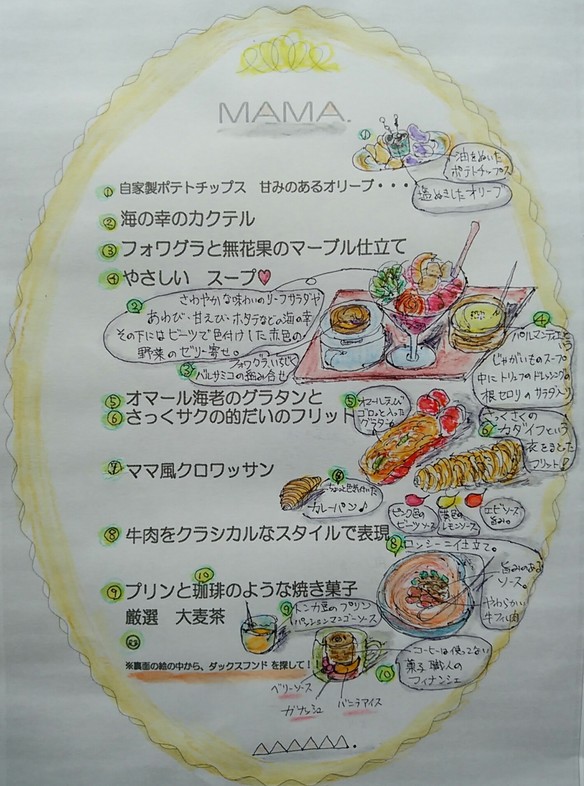 MAMA.
①
油をぬいた
ポテトチップス
塩ぬきしたオリーブ
① 自家製ポテトチップス 甘みのあるオリーブ・・・
② 海の幸のカクテル
③ フォワグラと無花果のマーブル仕立て
④ やさしい スープ♥
②
さわやかな味わいのリーフサラダや
あわび・甘えび・ホタテなどの海の幸
その下にはビーツで色付けした赤色の
野菜のゼリー寄せ。
③
フォワグラ、いちじく
バルサミコの組み合せ
④
パルマンティエ
じゃがいものスープ
中にトリュフのドレッシングの
根セロリのサラダ入り
⑤ オマール海老のグラタンと
⑥ さっくサクの的だいのフリット
⑤
オマールえび
ゴロッと入った
グラタン
⑥
さっくさくの
カダイフという
衣をまとった
フリット♪
⑦ ママ風クロワッサン
ちょっと色気付いた
カレーパン♪
ピンク色の
ビーツソース
黄色の
レモンソース
エビソース
旨み。
⑧ 牛肉をクラシカルなスタイルで表現
⑧
ロッシーニ仕立て。
旨みのある
ソース。
やわらかい
牛フィレ肉
⑩
⑨ プリンと珈琲のような焼き菓子
厳選 大麦茶
⑨
トンカ豆のプリン
パッションマンゴーソース
※裏面の絵の中から、ダックスフンド を探して！！
コーヒーは使ってない
菓子職人の
フィナンシェ
⑩
ベリーソース
ガナッシュ
バニラアイス